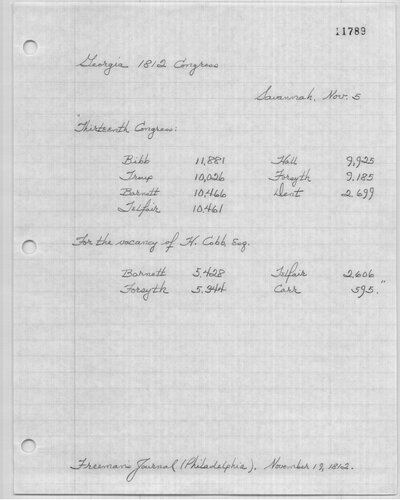 11789
Georgia 1812 Congress
Savannah, Nov. 5
"Thirteenth Congress:
Bibb 11,881 Hall 9,925
Troup 10,026 Forsyth 9,185
Barnett 10,466 Dent 2,699
Telfair 10,461
For the vacancy of H. Cobb, Esq.
Barnett 5,428 Telfair 2,606
Forsyth 5,344 Carr 595."
Freeman Journal (Philadelphia). November 19, 1812.